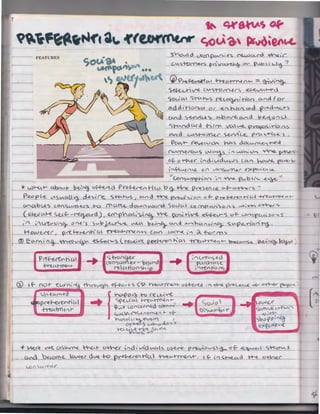 & status of
PREFERENTIAL treatment
Social Audience
FEATURES
Social comparison ...
is everywhere
should companies reward their
customers privately or publicly?
Preferential treatment = giving
selective customers elevated
social status recognition and/or
additional or enhanced products
and services above and beyond
standard firm value propositions
and customer service practices.
Past research has documented
numerous ways in which the
of other individuals can have
influence on consumer experience
"consumption in the public eye"
* what about being offered Preferential by the presence of others?
People usually desire status, and the provision of preferential treatment
enables consumers to make downward social comparisons with others
(elevate self-regard), emphasising the positive effects of comparisons
in increasing one's subjective well being and enhancing superiority.
However, preferential treatment can come in 2 forms
① Earning through efforts (receive preferential treatment because being loyal
Preferential
treatment
stronger
consumer-brand
relationship
increased
purchase
intentions
② If not earning through efforts & treatment offered in the presence of other people
Unearned
preferential
treatment
happy to receive
special treatment
But concerned about
others
receive the same
Social
Discomfort
Lower
satisfaction
with
shopping
experience
* Here we assume that other individuals were previously of equal status
and became lower due to preferential treatment. If instead the other
consumer